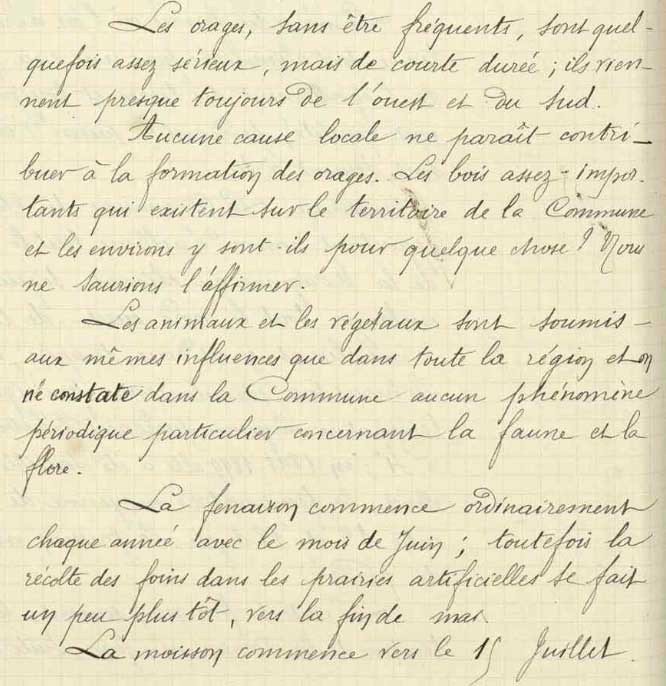 Les orages, sans être fréquents, sont quel-
quefois assez sérieux, mais de courte durée ; ils vien-
nent presque toujours de l'ouest et du sud.
Aucune cause locale ne paraît contri-
buer à la formation des orages. Les bois assez impor-
tants qui existent sur le territoire de la Commune
et les environs y sont-ils pour quelque chose ? Nous
ne saurions l'affirmer.
Les animaux et les végétaux sont soumis
aux mêmes influences que dans toute la région et on
ne constate dans la Commune aucun phénomène
périodique particulier concernant la faune et la
flore.
La fenaison commence ordinairement
chaque année avec le mois de Juin ; toutefois la
récolte des foins dans les prairies artificielles se fait
un peu plus tôt, vers la fin de mai.
La moisson commence vers le 15 Juillet.